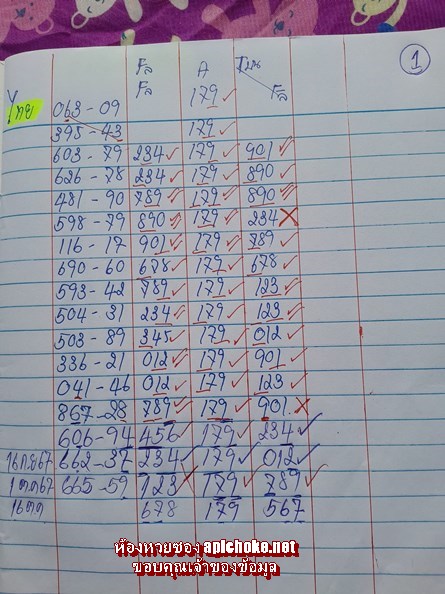 วิ่ง วิ่ง A บน 1
ไทย 063-09 179 ✓ วิ่ง
395-43 179 ✓
603-79 234 ✓ 179 ✓ 901 ✓
626-78 234 ✓ 179 ✓ 890 ✓
481-90 789 ✓ 179 ✓ 890 ✓
598-79 890 ✓ 179 ✓ 234 ✗
116-17 901 ✓ 179 ✓ 789 ✓
690-60 678 ✓ 179 ✓ 678 ✓
593-42 789 ✓ 179 ✓ 123 ✓
504-31 234 ✓ 179 ✓ 123 ✓
503-89 345 ✓ 179 ✓ 012 ✓
336-21 012 ✓ 179 ✓ 901 ✓
041-46 012 ✓ 179 ✓ 123 ✓
867-28 789 ✓ 179 ✓ 901 ✗
606-94 456 ✓ 179 ✓ 234 ✓
16กย67 662-37 234 ✓ 179 ✓ 012 ✓
1ตค67 665-59 123 ✗ 179 ✓ 789 ✓
16ตค 678 179 567
ห้องหวยซอง apichoke.net
ขอบคุณเจ้าของข้อมูล